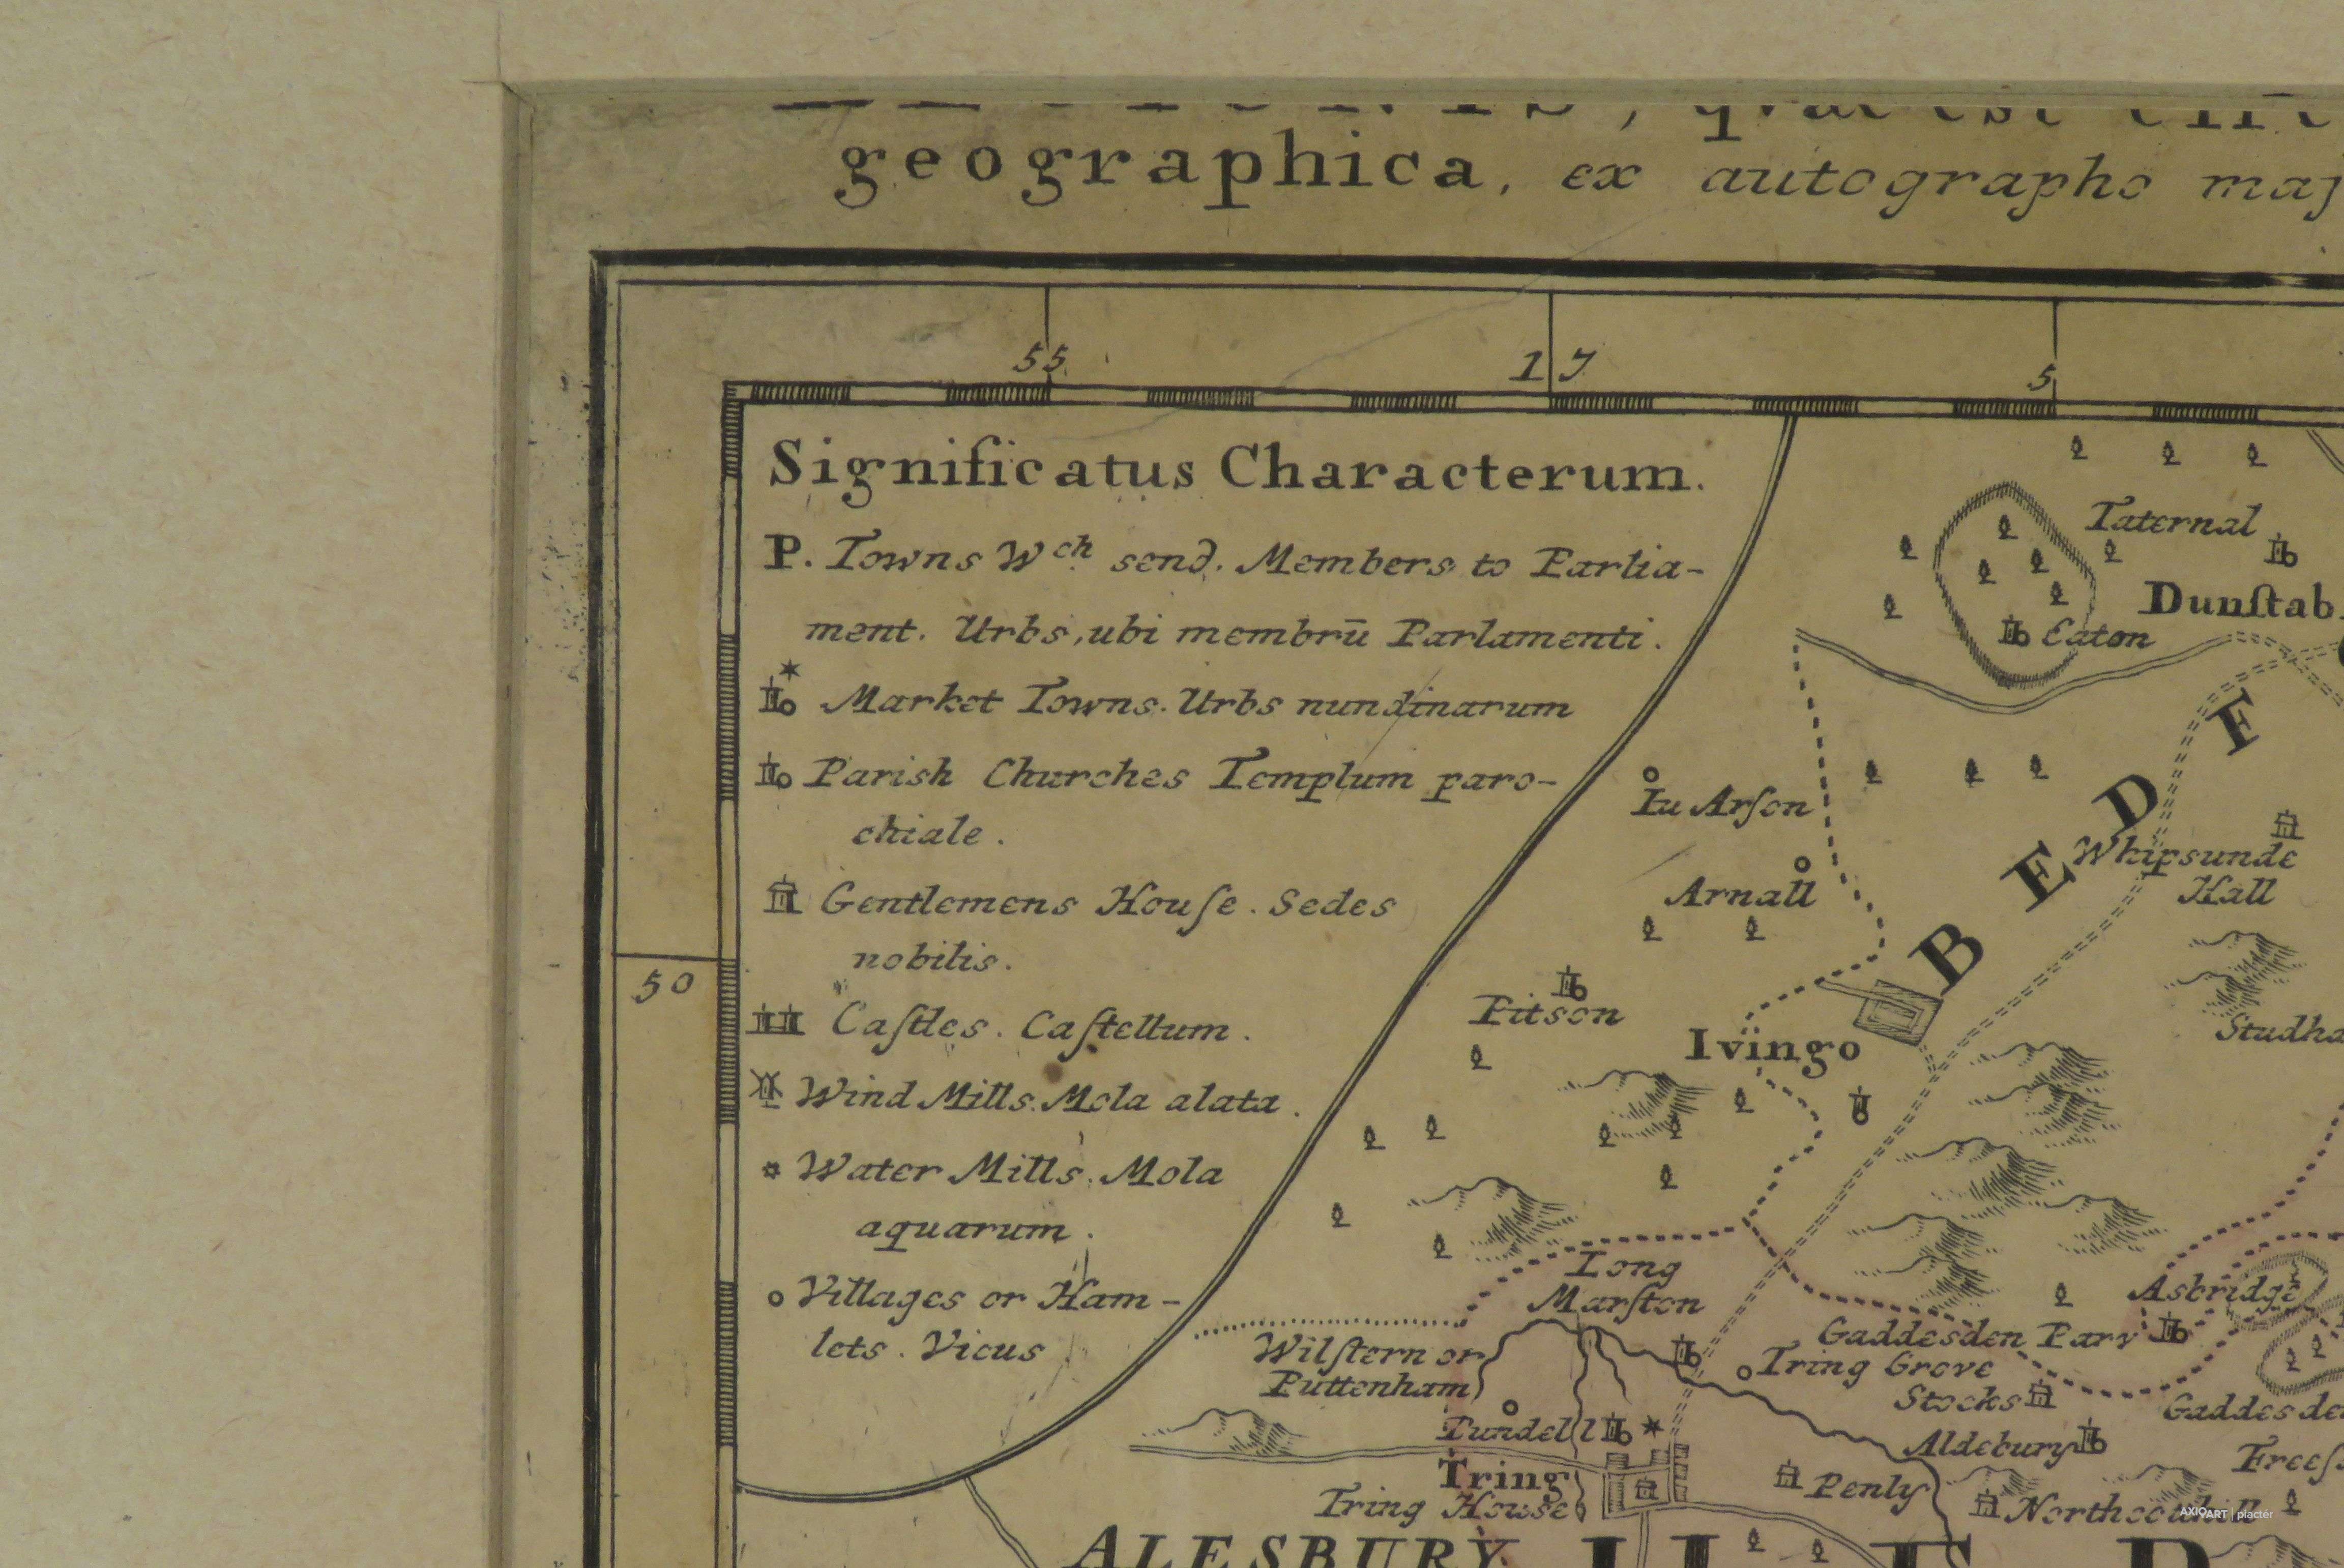 geographica, ex autographo maj
55
17
5
Significatus Characterum.
P. Towns Wch send. Members to Parlia-
ment. Urbs, ubi membrū Parlamenti.
Market Towns. Urbs nundinarum
Parish Churches Templum paro-
chiale.
Gentlemens Houſe. Sedes
nobilis.
Caſtles. Caſtellum.
Wind Mills. Mola alata.
Water Mills. Mola
aquarum.
Villages or Ham-
lets. Vicus
50
Taternal
Dunſtab
Eaton
BEDF
Iu Arſon
Whipsunde
Hall
Arnall
Pitson
Ivingo
Studha
Long
Marſton
Asbridge
Gaddesden Parv
Wilſtern or
Puttenham
Tring Grove
Stocks
Gaddesde
Tundell
Aldebury
Freeſ
Tring
Penly
Tring House
ALESBURY
AXIOART | plactér